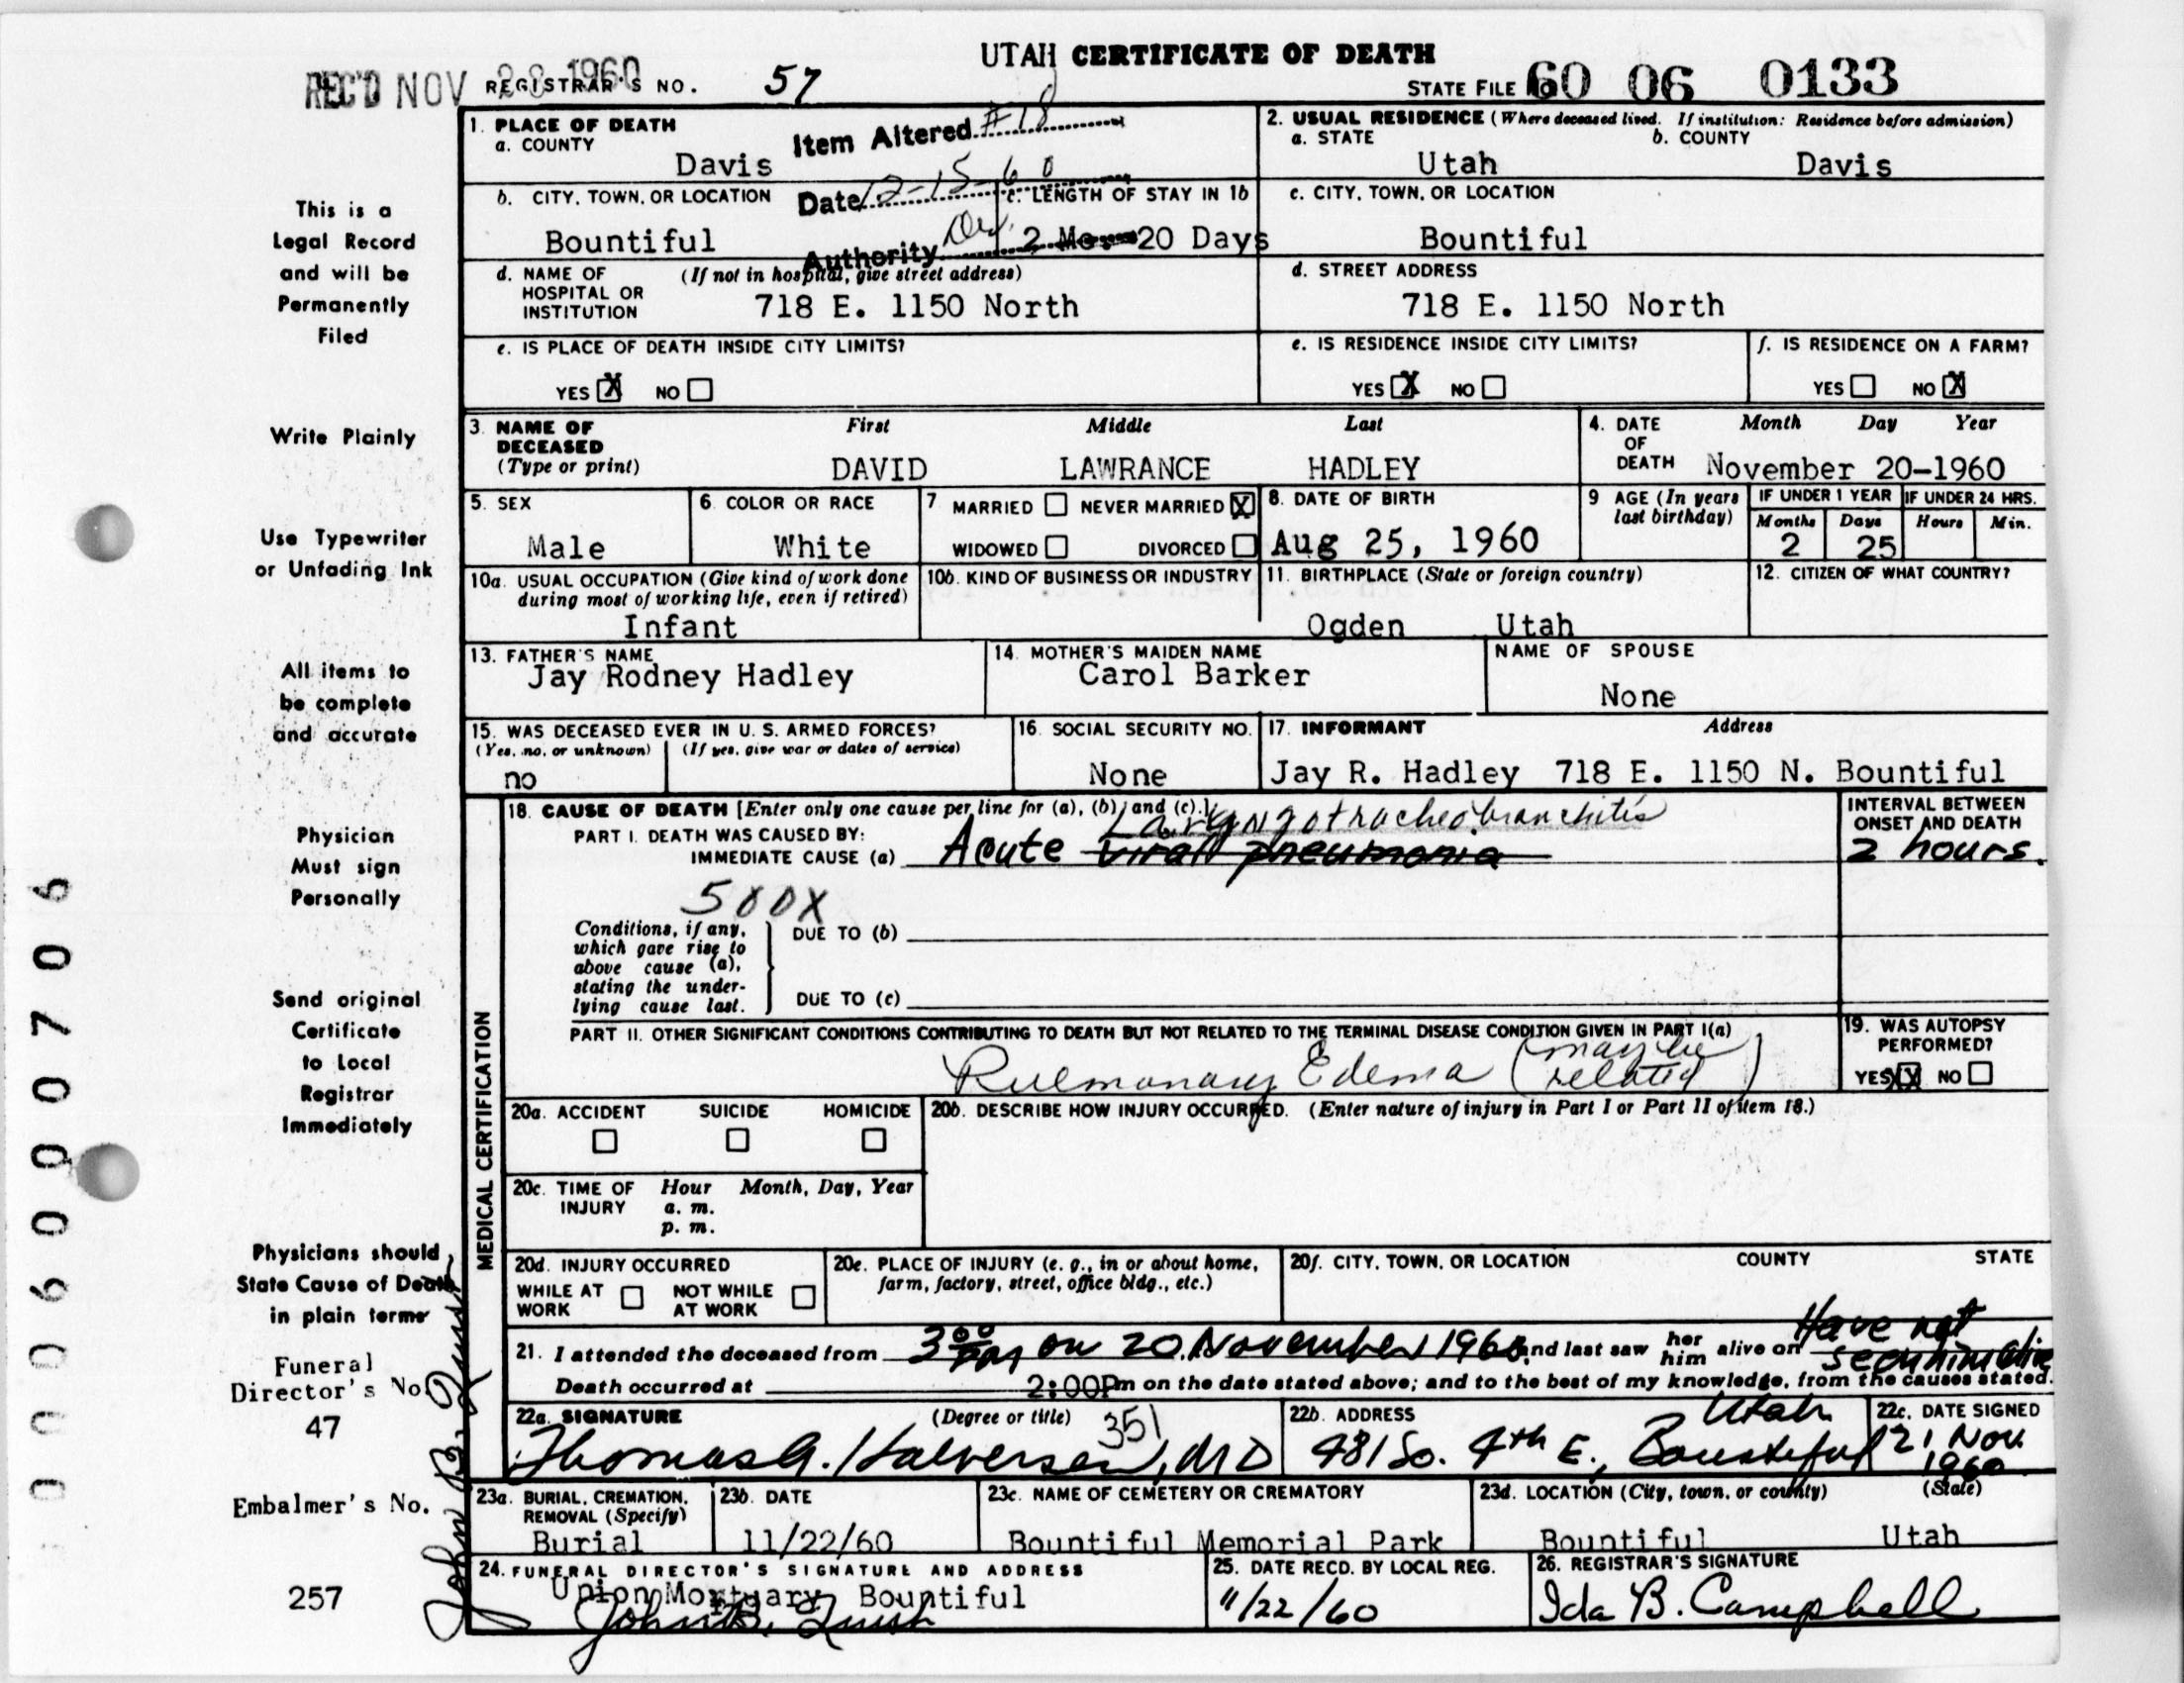 UTAH CERTIFICATE OF DEATH
REC'D NOV 28 1960 REGISTRAR'S NO. 57 STATE FILE NO. 60 06 0133
1. PLACE OF DEATH
a. COUNTY
Davis
Item Altered #18
Date 12-15-60
Authority Dr.
2. USUAL RESIDENCE (Where deceased lived. If institution: Residence before admission)
a. STATE b. COUNTY
Utah Davis
b. CITY, TOWN, OR LOCATION
Bountiful
c. LENGTH OF STAY IN 1b
2 Mo. 20 Days
c. CITY, TOWN, OR LOCATION
Bountiful
d. NAME OF HOSPITAL OR INSTITUTION (If not in hospital, give street address)
718 E. 1150 North
d. STREET ADDRESS
718 E. 1150 North
e. IS PLACE OF DEATH INSIDE CITY LIMITS?
YES X NO
e. IS RESIDENCE INSIDE CITY LIMITS?
YES X NO
f. IS RESIDENCE ON A FARM?
YES NO X
3. NAME OF DECEASED (Type or print)
First Middle Last
DAVID LAWRANCE HADLEY
4. DATE OF DEATH Month Day Year
November 20-1960
5. SEX
Male
6. COLOR OR RACE
White
7 MARRIED NEVER MARRIED X
WIDOWED DIVORCED
8. DATE OF BIRTH
Aug 25, 1960
9 AGE (In years last birthday)
IF UNDER 1 YEAR IF UNDER 24 HRS.
Months Days Hours Min.
2 25
10a. USUAL OCCUPATION (Give kind of work done during most of working life, even if retired)
Infant
10b. KIND OF BUSINESS OR INDUSTRY
11. BIRTHPLACE (State or foreign country)
Ogden Utah
12. CITIZEN OF WHAT COUNTRY?
13. FATHER'S NAME
Jay Rodney Hadley
14. MOTHER'S MAIDEN NAME
Carol Barker
NAME OF SPOUSE
None
15. WAS DECEASED EVER IN U. S. ARMED FORCES?
(Yes, no, or unknown) (If yes, give war or dates of service)
no
16. SOCIAL SECURITY NO.
None
17. INFORMANT Address
Jay R. Hadley 718 E. 1150 N. Bountiful
MEDICAL CERTIFICATION
18. CAUSE OF DEATH [Enter only one cause per line for (a), (b), and (c).]
PART I. DEATH WAS CAUSED BY:
Laryngotracheobronchitis
IMMEDIATE CAUSE (a) Acute viral pneumonia
INTERVAL BETWEEN ONSET AND DEATH
2 hours.
500X
Conditions, if any, which gave rise to above cause (a), stating the underlying cause last.
DUE TO (b)
DUE TO (c)
PART II. OTHER SIGNIFICANT CONDITIONS CONTRIBUTING TO DEATH BUT NOT RELATED TO THE TERMINAL DISEASE CONDITION GIVEN IN PART I(a)
Pulmonary Edema (may be related)
19. WAS AUTOPSY PERFORMED?
YES X NO
20a. ACCIDENT SUICIDE HOMICIDE
20b. DESCRIBE HOW INJURY OCCURRED. (Enter nature of injury in Part I or Part II of item 18.)
20c. TIME OF INJURY Hour Month, Day, Year
a. m.
p. m.
20d. INJURY OCCURRED
WHILE AT WORK NOT WHILE AT WORK
20e. PLACE OF INJURY (e. g., in or about home, farm, factory, street, office bldg., etc.)
20f. CITY, TOWN, OR LOCATION COUNTY STATE
21. I attended the deceased from 3:00 PM on 20 November 1960 and last saw her him alive on Have not seen him alive
Death occurred at 2:00P m on the date stated above; and to the best of my knowledge, from the causes stated.
22a. SIGNATURE (Degree or title) 351
Thomas G. Halversen, MD
22b. ADDRESS
481 So. 4th E., Bountiful Utah
22c. DATE SIGNED
21 Nov. 1960
23a. BURIAL, CREMATION, REMOVAL (Specify)
Burial
23b. DATE
11/22/60
23c. NAME OF CEMETERY OR CREMATORY
Bountiful Memorial Park
23d. LOCATION (City, town, or county) (State)
Bountiful Utah
24. FUNERAL DIRECTOR'S SIGNATURE AND ADDRESS
Union Mortuary Bountiful
John B.
25. DATE RECD. BY LOCAL REG.
11/22/60
26. REGISTRAR'S SIGNATURE
Ida B. Campbell
This is a
Legal Record
and will be
Permanently
Filed
Write Plainly
Use Typewriter
or Unfading Ink
All items to
be complete
and accurate
Physician
Must sign
Personally
Send original
Certificate
to Local
Registrar
Immediately
Physicians should
State Cause of Death
in plain terms
Funeral
Director's No.
47
Embalmer's No.
257
John B.
000600706